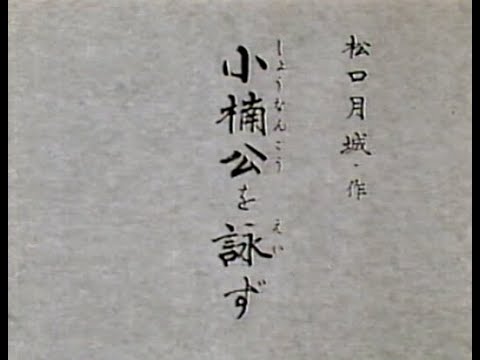 松口月城・作
小楠公を詠ず
しょうなんこう
えい